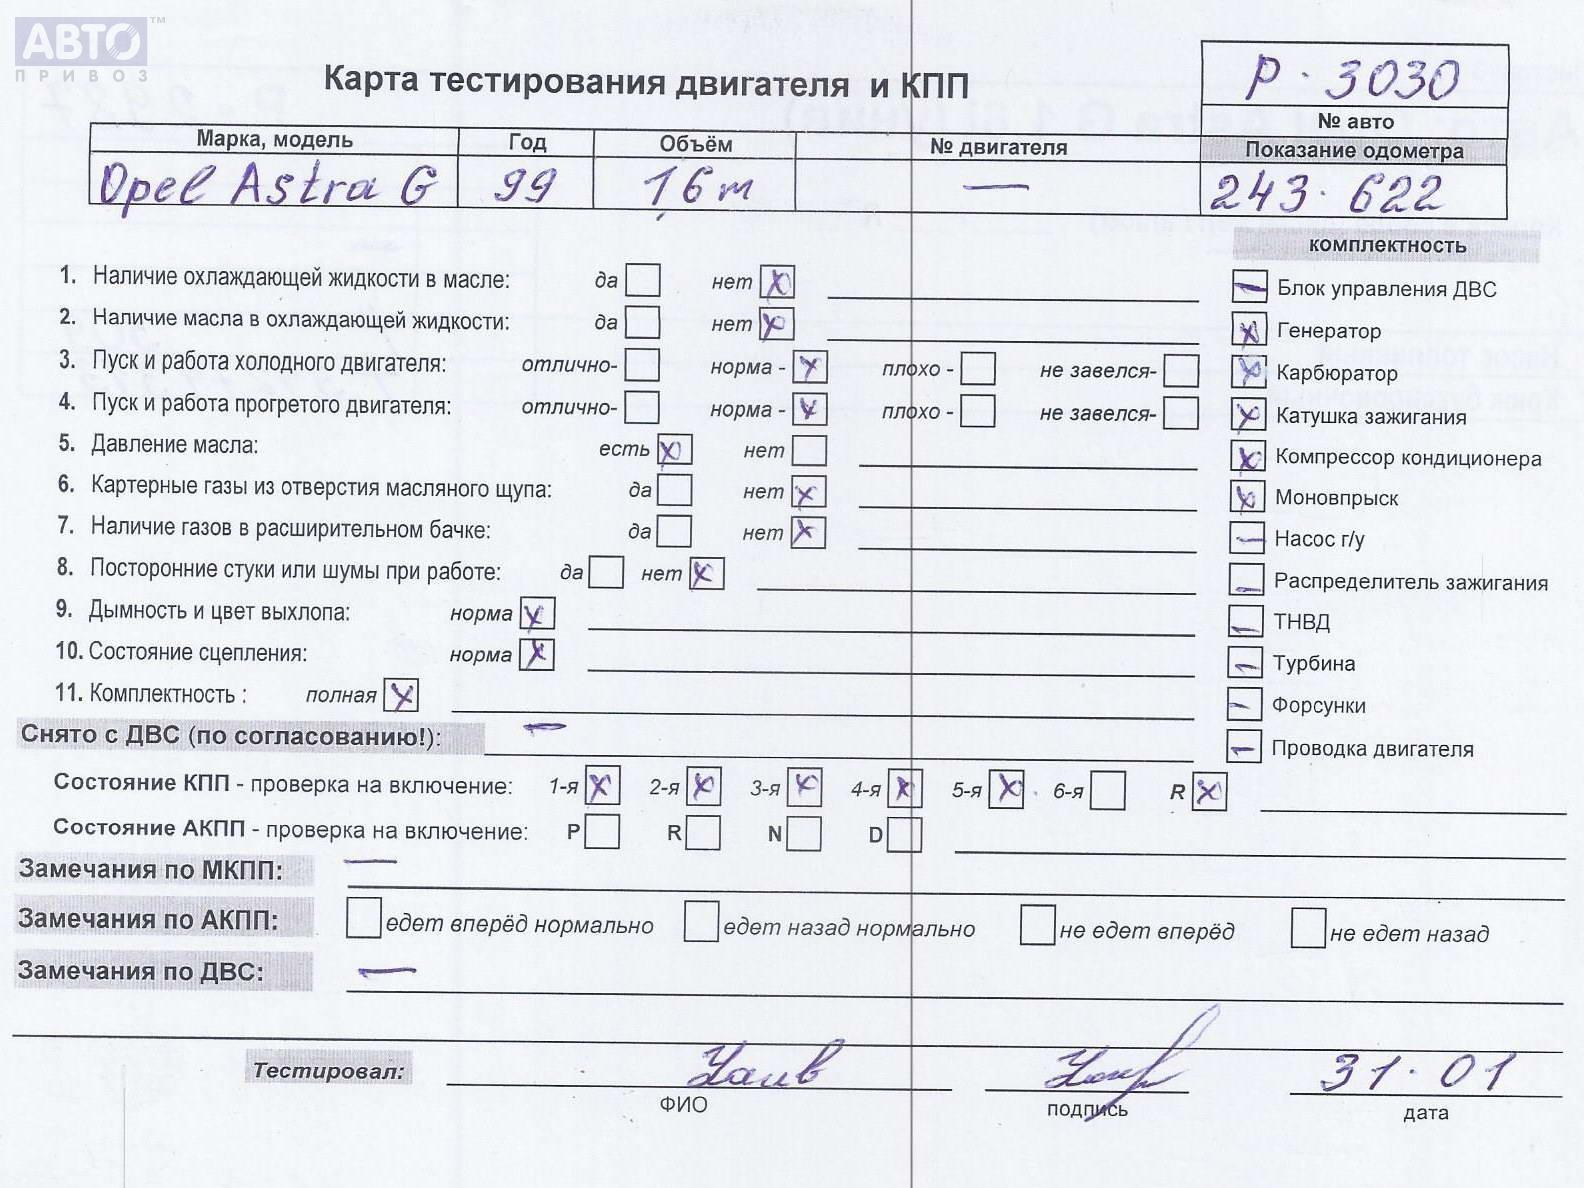 АВТО™
ПРИВОЗ
Карта тестирования двигателя и КПП
Р · 3030
№ авто
Марка, модель Год Объём № двигателя Показание одометра
Opel Astra G 99 1,6 m — 243 · 622
комплектность
1. Наличие охлаждающей жидкости в масле: да нет x
2. Наличие масла в охлаждающей жидкости: да нет x
3. Пуск и работа холодного двигателя: отлично- норма - x плохо - не завелся-
4. Пуск и работа прогретого двигателя: отлично- норма - x плохо - не завелся-
5. Давление масла: есть x нет
6. Картерные газы из отверстия масляного щупа: да нет x
7. Наличие газов в расширительном бачке: да нет x
8. Посторонние стуки или шумы при работе: да нет x
9. Дымность и цвет выхлопа: норма x
10. Состояние сцепления: норма x
11. Комплектность : полная x
— Блок управления ДВС
x Генератор
x Карбюратор
x Катушка зажигания
x Компрессор кондиционера
x Моновпрыск
— Насос г/у
— Распределитель зажигания
— ТНВД
— Турбина
— Форсунки
— Проводка двигателя
Снято с ДВС (по согласованию!): —
Состояние КПП - проверка на включение: 1-я x 2-я x 3-я x 4-я x 5-я x 6-я R x
Состояние АКПП - проверка на включение: P R N D
Замечания по МКПП: —
Замечания по АКПП: едет вперёд нормально едет назад нормально не едет вперёд не едет назад
Замечания по ДВС: —
Тестировал: 31 · 01
ФИО подпись дата